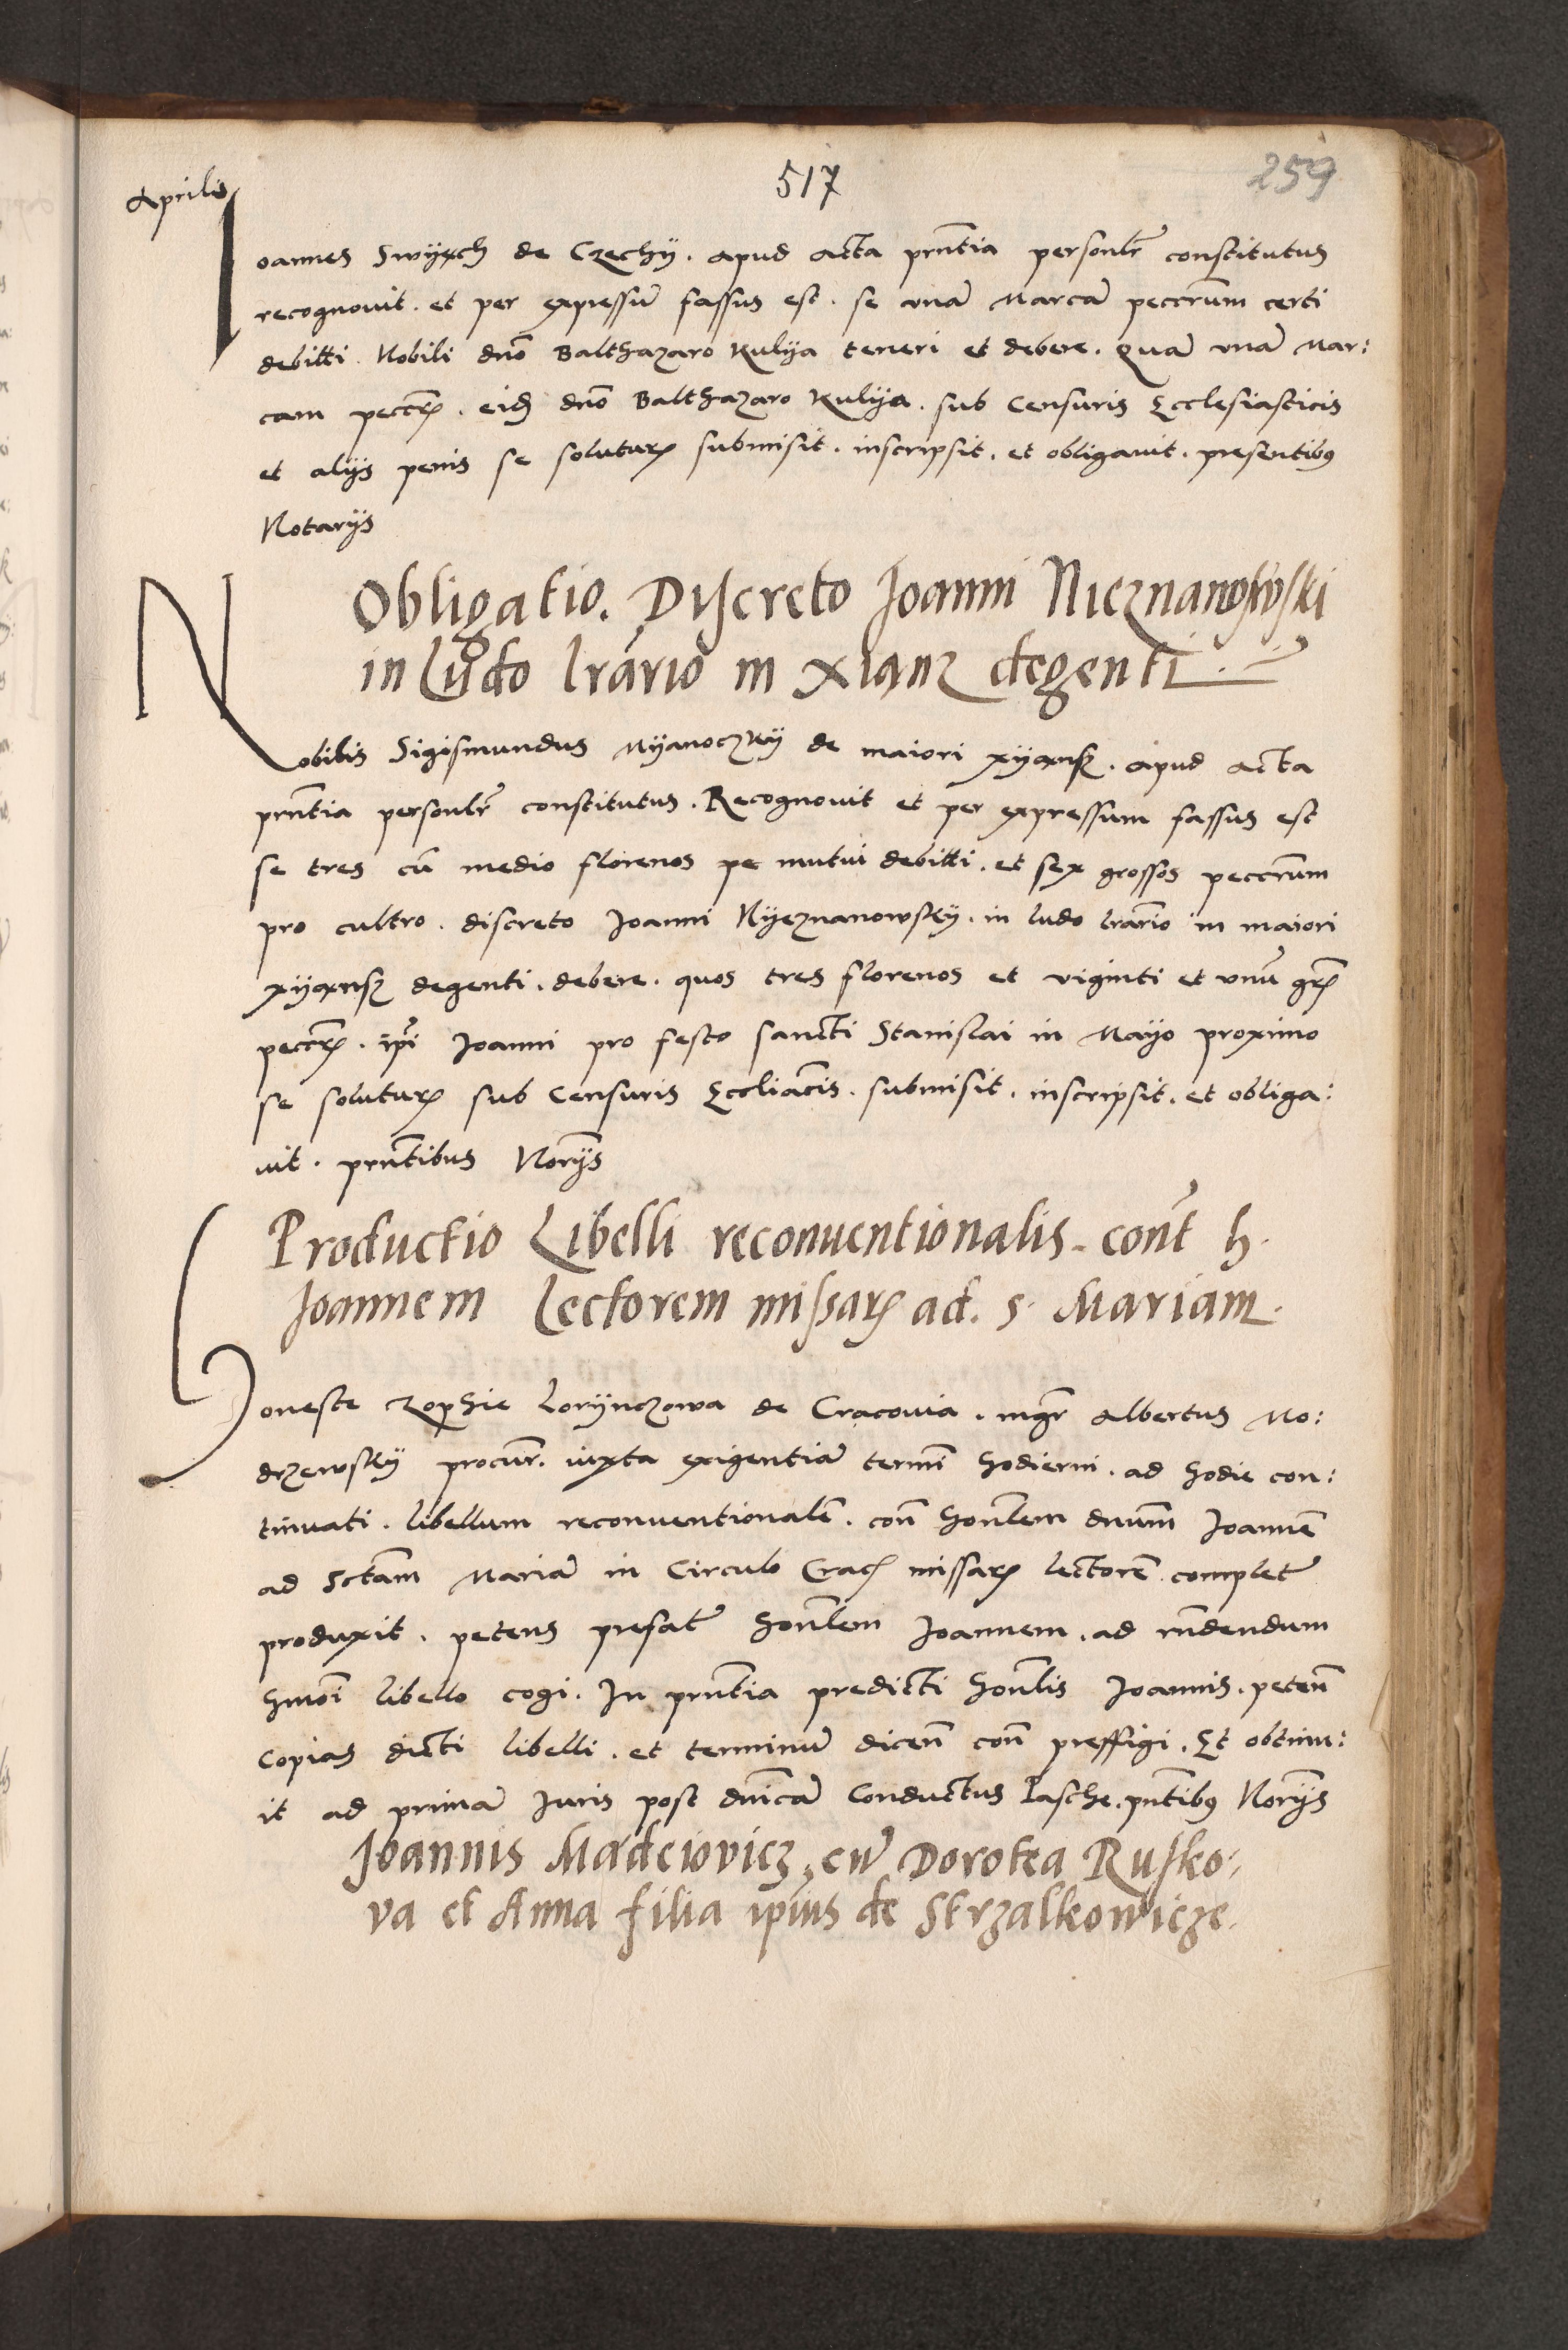 Aprilis
517
259
Ioannes Swyrch de Czechy . apud acta prñtia personlr̃ constitutus
recognovit . et per expressũ fassus est . se vnã Marcã peccr̃um certi
debitti . Nobili dño Balthazaro Kulija teneri et debere . Quã vnã Mar:
cam peccr̃ . eid dño Balthazaro Kulija . sub Censuris Ecclesiasticis
et alijs penis se soluturꝝ submisit . inscripsit . et obligauit . presentibꝰ
Notarijs
Obligatio. Discreto Joanni Nieznanowski
in Ludo lrãrio in Xianz degenti
Nobilis Sigismundus Myanoczky de maiori xyansz . apud acta
prñtia personlr̃ constitutus . Recognovit et per expressum fassus est
se tres cũ medio florenos pe mutui debitti . et sex grossos peccr̃um
pro cultro . discreto Joanni Nyeznanowsky . in ludo lrãrio in maiori
xyansz degenti . debere . quos tres florenos et viginti et vnũ gr̃
peccr̃ . ip̃i Joanni pro festo sancti Stanislai in Mayo proximo
se soluturꝝ sub Censuris Eccliãcis . submisit . inscripsit . et obliga:
uit . prñtibus Norĩjs
Productio Libelli reconuentionalis . cont̃ h.
Joannem Lectorem missarꝝ ad . s. Mariam.
Honeste Zophie Lorynczowa de Cracouia . mgr̃ Albertus Mo:
drzewsky procur̃ . iuxta exigentiã termĩ hodierni . ad hodie con:
tinuati . libellum reconuentionalẽ . coñ honl̃em dnũm Joannẽ
ad Sctãm Mariã in Circulo Crac̃ missarꝝ lectorẽ complet̃
produxit . petens prefat̃ honl̃em Joannem . ad rñdendum
hmõi libello cogi . In prñtia predicti honl̃is Joannis . peteñ
Copias dicti libelli . et terminũ diceñ coñ preffigi . Et obtinu:
it ad primã Juris post dnĩcã Conductus Pasche . pñtibꝰ Norĩjs
Joannis Madeiovicz , cũ Dorotea Rusko:
va et Anna filia ipĩus de Strzalkowicze.